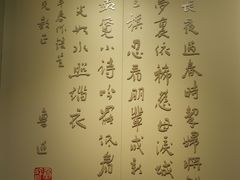 長夜過春時挈婦將雛
夢裏依稀慈母淚城
王旗忍看朋輩成新
覓小詩吟罷低眉
光如水照緇衣
教正
魯迅